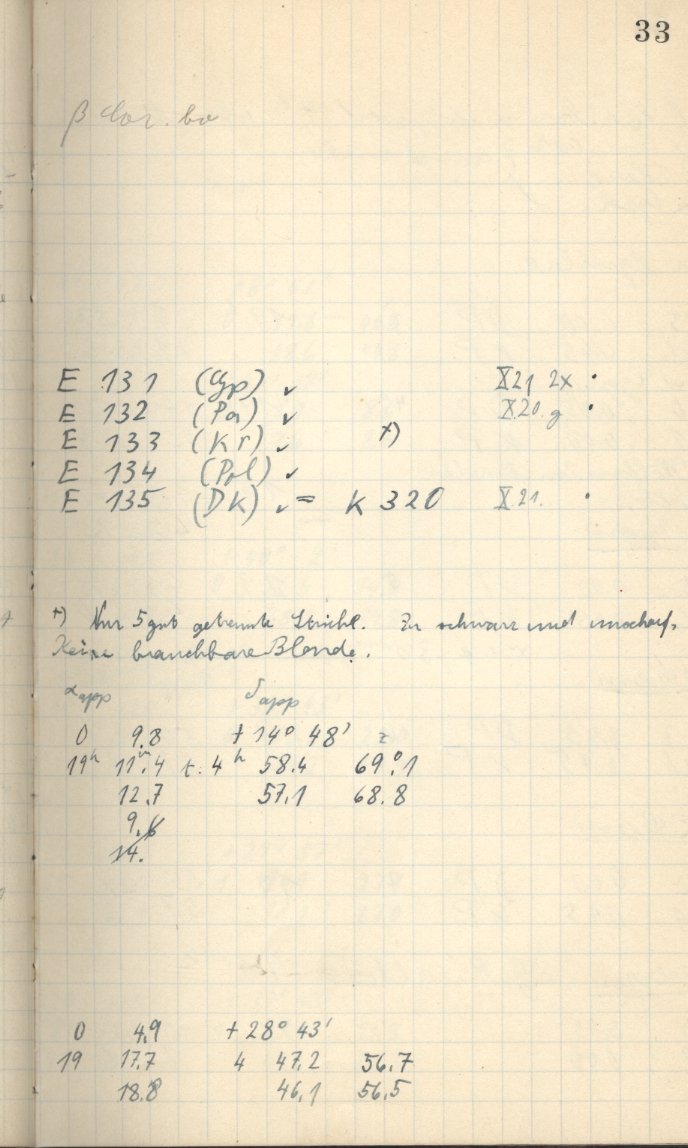 33
β Cor. bo
E 131 (Cyp) ✓ X21 2x •
E 132 (Pa) ✓ X20. g •
E 133 (Kr) ✓ +)
E 134 (Pol) ✓
E 135 (DK) ✓ = K 320 X21. •
+) Nur 5 gut getrennte Striche. Zu schwarz und unscharf.
Keine brauchbare Blende.
α app δ app
0 9.8 + 14° 48' z
19h 11m.4 t: 4h 58.4 69°.1
12.7 57.1 68.8
9.6
14.
0 4.9 + 28° 43'
19 17.7 4 47.2 56.7
18.8 46.1 56.5